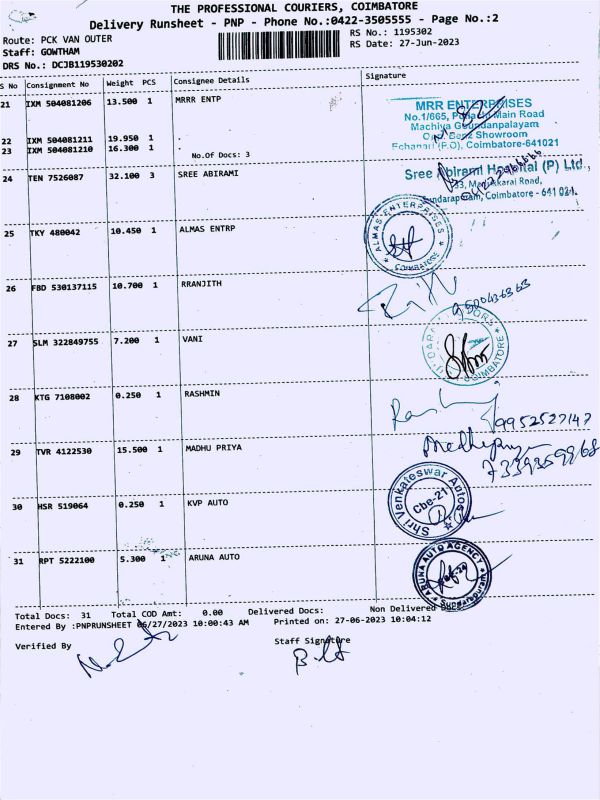 THE PROFESSIONAL COURIERS, COIMBATORE
Delivery Runsheet - PNP - Phone No.:0422-3505555 - Page No.:2
Route: PCK VAN OUTER
Staff: GOWTHAM
DRS No.: DCJB119530202
RS No.: 1195302
RS Date: 27-Jun-2023
S No Consignment No Weight PCS Consignee Details Signature
21 IXM 504081206 13.500 1 MRRR ENTP
MRR ENTERPRISES
No.1/665, Main Road
Machiya Goundanpalayam
Opp. Benz Showroom
(P.O), Coimbatore-641021
22 IXM 504081211 19.950 1 .
23 IXM 504081210 16.300 1 .
No.Of Docs: 3
24 TEN 7526087 32.100 3 SREE ABIRAMI
Sree Abirami Hospital (P) Ltd.,
33, Madukkarai Road,
Sundarapuram, Coimbatore - 641 024.
25 TKY 480042 10.450 1 ALMAS ENTRP
ALMAS ENTERPRISES
COIMBATORE
26 FBD 530137115 10.700 1 RRANJITH
27 SLM 322849755 7.200 1 VANI
COIMBATORE
28 KTG 7108002 0.250 1 RASHMIN
9952527147
29 TVR 4122530 15.500 1 MADHU PRIYA
Madhupriya
7339259968
30 HSR 519064 0.250 1 KVP AUTO
Shri Venkateswar Autos
Cbe-21
31 RPT 5222100 5.300 1 ARUNA AUTO
ARUNA AUTO AGENCY
Total Docs: 31 Total COD Amt: 0.00 Delivered Docs: Non Delivered Docs:
Entered By :PNPRUNSHEET 06/27/2023 10:00:43 AM Printed on: 27-06-2023 10:04:12
Verified By
Staff Signature